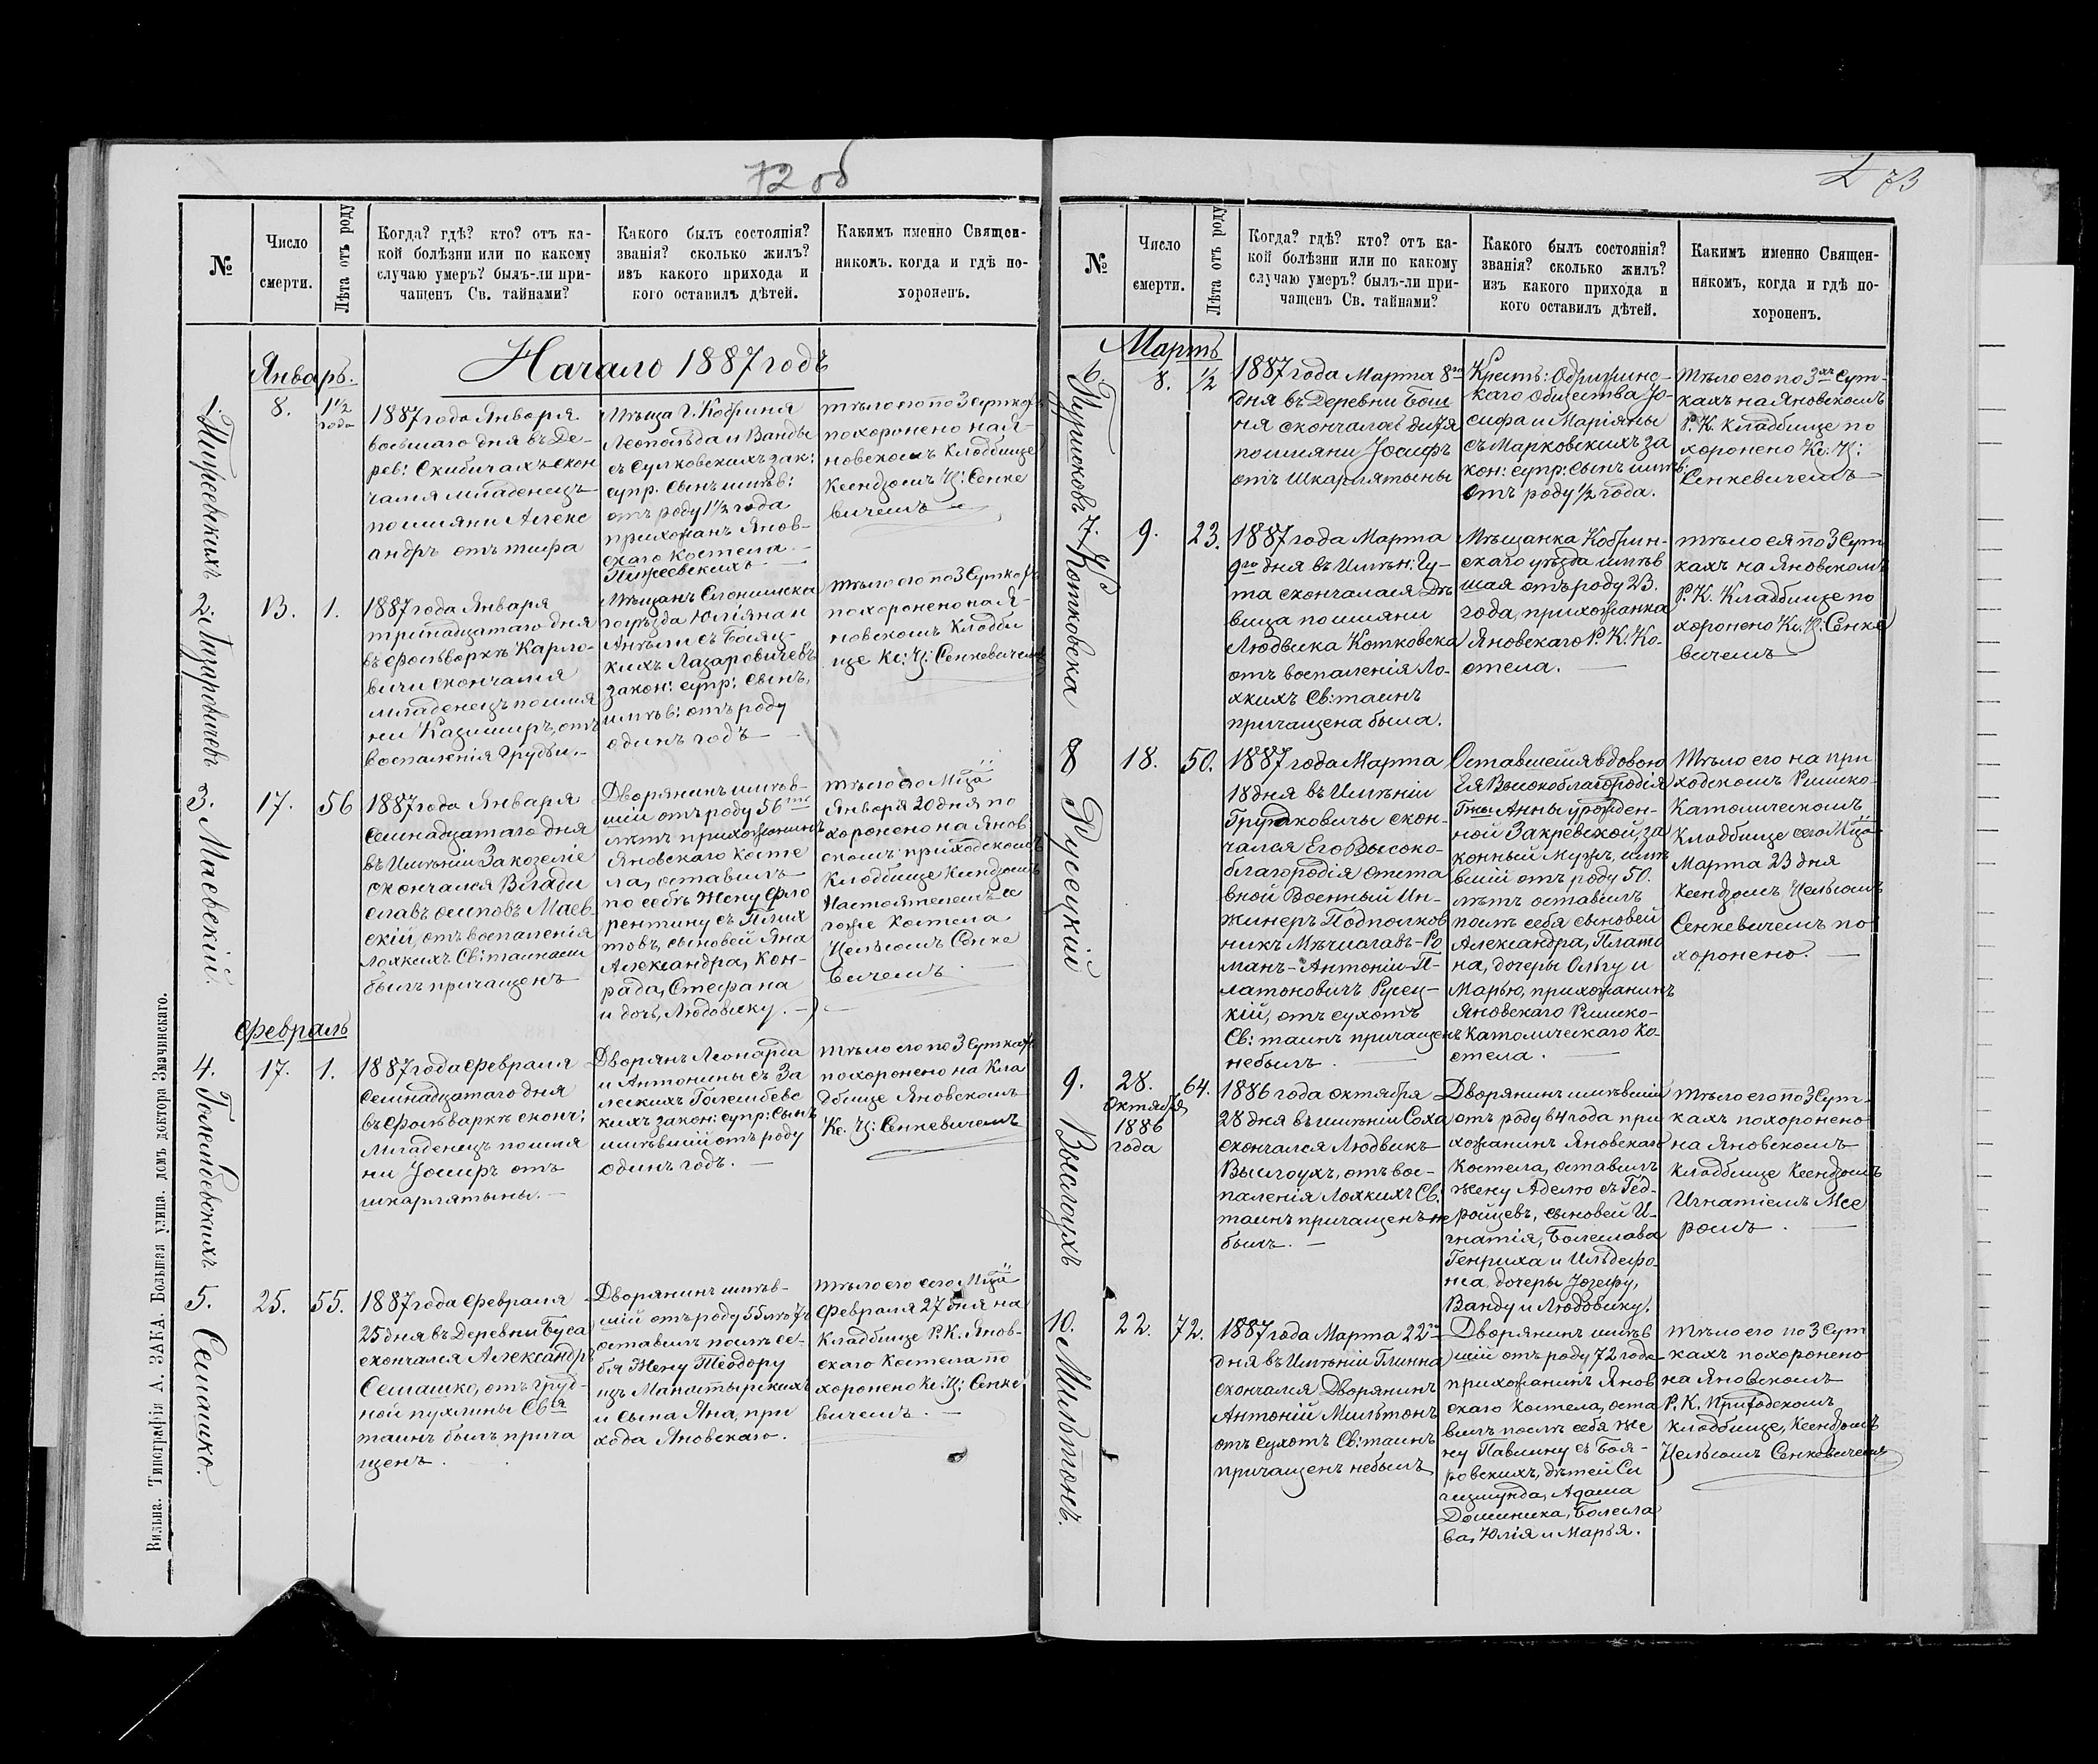 72 об
№
Число
смерти.
Лѣта отъ роду
Когда? гдѣ? кто? отъ ка-
кой болѣзни или по какому
случаю умеръ? былъ-ли при-
чащенъ Св. тайнами?
Какого былъ состоянія?
званія? сколько жилъ?
изъ какого прихода и
кого оставилъ дѣтей.
Какимъ именно Священ-
никомъ. когда и гдѣ по-
хороненъ.
Начало 1887 годъ
Январь.
1.
8.
1½
года
1887 года Января
восьмаго дня въ Де-
рев: Скибичахъ скон
чался младенецъ
по имяни Алекс
андръ отъ тифа
Мѣща г. Кобриня
Леопольда и Ванды
съ Сулковскихъ зак:
супр. сынъ имѣв:
отъ роду 1½ года
прихожанъ Янов-
скаго Костела.
тѣло его по 3 суткахъ
похоронено на Я-
новскомъ Кладбище
Ксендзомъ Ц: Сенке
вичемъ
2. Лазаровичевъ
13.
1.
1887 года Января
тринадцатаго дня
въ фольваркѣ Карло-
вичи скончался
младенецъ по имя
ни Казимиръ, отъ
воспаленія Груди.
Мѣщанъ Слонимска
го уѣзда Юліяна и
Анѣли съ
кихъ Лазаровичевъ
закон: супр: сынъ,
имѣв: отъ роду
одинъ годъ
тѣло его по 3 суткахъ
похоронено на Я-
новскомъ Кладби
ще Кс: Ц: Сенкевичемъ
3. Маевскій.
17.
56
1887 года Января
семнадцатаго дня
въ Имѣніи Закозеліе
скончался Влади
славъ осиповъ Маев-
скій, отъ воспаленія
Лохкихъ Св: таинами
былъ причащенъ
Дворянинъ имѣв-
шій отъ роду 56
лѣтъ прихожанинъ
Яновскаго Косте
ла, оставилъ
по себѣ Жену Фло
рентину съ
товъ, сыновей Яна
Александра, Кон-
рада, Стефана
и дочь, Людовику.
тѣло его Мца
Января 20 дня по
хоронено на Янов
скомъ приходскомъ
Кладбище Ксендзомъ
Настоятелемъ се
гоже Костела
Цельсомъ Сенке
вичемъ
Февраль
4. Голембевскихъ
17.
1.
1887 года Февраля
семнадцатаго дня
въ Фольваркѣ сконч:
Младенецъ по имя
ни Іосифъ отъ
шкарлятыны.
Дворянъ Леонарда
и Антонины съ За
лескихъ Голембевс
кихъ закон: супр: сынъ
имѣвшій отъ роду
одинъ годъ.
тѣло его по 3 суткахъ
похоронено на Кла
дбище Яновскомъ
Кс. Ц: Сенкевичемъ
5. Семашко.
25.
55.
1887 года Февраля
25 дня въ Деревни Буса
скончался Александръ
Семашко, отъ груд-
ной пухлины Св:
таинъ былъ прича
щенъ
Дворянинъ имѣв-
шій отъ роду 55 лѣтъ
оставилъ послѣ се-
бя Жену Теодору
изъ Манастырскихъ
и сына Яна, при
хода Яновскаго.
тѣло его сего Мца
Февраля 27 дня на
Кладбище Р.К. Янов-
скаго Костела по
хоронено Кс: Ц: Сенке
вичемъ.
Вильна. Типографія А. ЗАКА. Большая улица. домъ доктора Змачинскаго.
73
№
Число
смерти.
Лѣта отъ роду
Когда? гдѣ? кто? отъ ка-
кой болѣзни или по какому
случаю умеръ? былъ-ли при-
чащенъ Св. тайнами?
Какого былъ состоянія?
званія? сколько жилъ?
изъ какого прихода и
кого оставилъ дѣтей.
Какимъ именно Священ-
никомъ, когда и гдѣ по-
хороненъ.
Мартъ
6.
8.
½
1887 года Марта 8го
дня въ Деревни Бош
ня скончалас дитя
по имяни Іосифъ
отъ Шкарлятыны
Крестъ:
каго Общества Іо-
сифа и Маріяны
съ Марковскихъ за
кон: супр: сынъ имѣв:
отъ роду ½ года.
тѣло его по 3хъ сут-
кахъ на Яновскомъ
Р. К. Кладбище по
хоронено Кс: Ц:
Сенкевичемъ
7. Котковска
9.
23.
1887 года Марта
9го дня въ Имѣн: Гу-
та скончалася Дѣ
вица по имяни
Людвика Котковска
отъ воспаленія Ло-
хкихъ Св: таинъ
причащена была.
Мѣщанка Кобрин-
скаго уѣзда имѣв
шая отъ роду 23.
года, прихожанка
Яновскаго Р. К. Ко-
стела.
тѣло ея по 3 сут
кахъ на Яновскомъ
Р. К. Кладбище по
хоронено Кс. Ц: Сенке
вичемъ
8 Русецкій
18.
50.
1887 года Марта
18 дня въ Имѣніи
Грудковичы скон-
чался Его Высоко-
благородія отста
вной Военный Ин-
жинеръ Подполков
никъ Мѣчиславъ-Ро
манъ-Антоніи П-
латоновичъ Русец-
кій, отъ сухотъ
Св: таинъ причащенъ
небылъ
Оставшейся вдовою
Ея Высокоблагородія
Гжи Анны урожден-
ной Закревской, за
конный Мужъ, имѣ
вшій отъ роду 50.
лѣтъ оставилъ
послѣ себя сыновей
Александра, Плато
на, дочеры Ольгу и
Марью, прихожанинъ
Яновскаго Римско-
Католическаго Ко-
стела.
Тѣло его на при
ходскомъ Римско-
Католическомъ
Кладбище сего Мца
Марта 23 дня
Ксендзомъ Цельсомъ
Сенкевичемъ по
хоронено.
9. Выслоухъ
28.
Октября
1886
года
64.
1886 года октября
28 дня въ имѣніи Соха
скончался Людвикъ
Выслоухъ, отъ вос-
паленія Лохкихъ Св.
таинъ причащенъ не
былъ.
Дворянинъ имѣвшій
отъ роду 64 года при
хожанинъ Яновскаго
Костела, оставилъ
жену Аделю съ Гед-
ройцевъ, сыновей И-
гнатія, Болеслава
Генриха и Ильдефо
нса, дочеры Юзефу,
Ванду и Людовику.
тѣло его по 3 Сут-
кахъ похоронено
на Яновскомъ
кладбище Ксендзомъ
Игнатіемъ Мее
ромъ.
10. Мильтонъ.
22.
72.
1887 года Марта 22
дня въ Имѣніи Глинна
скончался Дворянинъ
Антоній Мильтонъ
отъ сухотъ Св: таинъ
причащенъ небылъ
Дворянинъ имѣв
шій отъ роду 72 года
прихожанинъ Янов
скаго Костела, оста
вилъ послѣ себя Же
ну Павлину съ Боя-
ровскихъ, дѣтей Си
гизмунда, Адама
Доминика, Болесла
ва, Юлія и Марья.
тѣло его по 3 сут
кахъ похоронено
на Яновскомъ
Р. К. Приходскомъ
кладбище, Ксендзомъ
Цельсомъ Сенкевичемъ